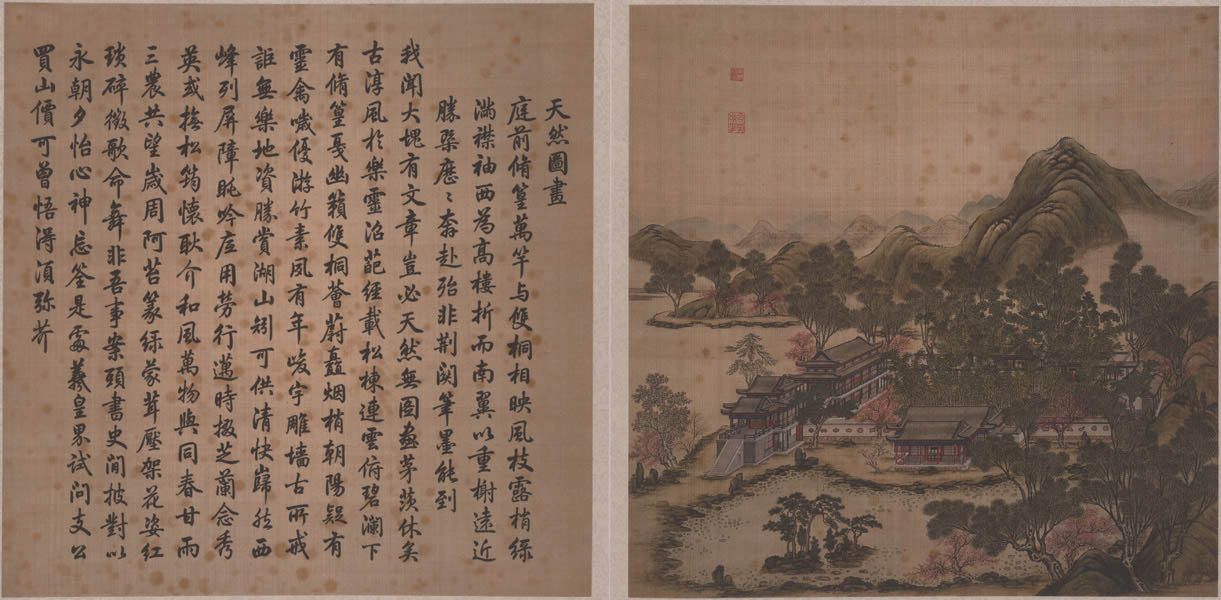 天然圖畫
庭前脩篁萬竿与雙桐相映風枝露梢綠
滿襟袖西為高樓折而南翼以重榭遠近
勝槩歷〻奔赴殆非荆関筆墨能到
我聞大塊有文章豈必天然無圖畫茅茨休矣
古淳風於樂靈沼葩經載松棟連雲俯碧瀾下
有脩篁戛幽籟雙桐薈蔚矗烟梢朝陽疑有
靈禽噦優游竹素夙有年峻宇雕墻古所戒
詎無樂地資勝賞湖山矧可供清快歸然西
峰列屏障眺吟底用勞行邁時掇芝蘭念秀
英或撫松筠懷耿介和風萬物與同春甘雨
三農共望歲周阿苔篆綠蒙茸壓架花姿紅
瑣碎徵歌命舞非吾事案頭書史閒披對以
永朝夕怡心神忘筌是處羲皇界試問支公
買山價可曾悟得須弥芥